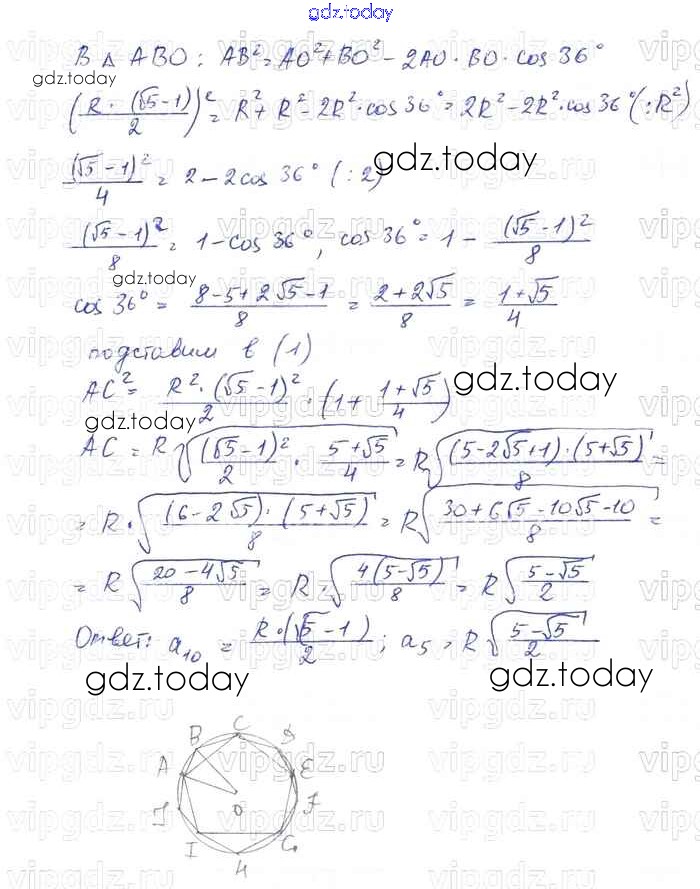 gdz.today
В △ ABO: AB² = AO² + BO² - 2AO · BO · cos 36°
gdz.today
(R · (√5-1)/2)² = R² + R² - 2R² · cos 36° = 2R² - 2R² · cos 36° (: R²)
(√5-1)²/4 = 2 - 2cos 36° (: 2)
gdz.today
(√5-1)²/8 = 1 - cos 36°, cos 36° = 1 - (√5-1)²/8
gdz.today
cos 36° = (8-5+2√5-1)/8 = (2+2√5)/8 = (1+√5)/4
подставим в (1)
AC² = R² · (√5-1)²/2 · (1 + (1+√5)/4)
gdz.today
gdz.today
AC = R√((√5-1)²/2 · (5+√5)/4) = R√((5-2√5+1) · (5+√5)/8) =
= R · √((6-2√5) · (5+√5)/8) = R√((30+6√5-10√5-10)/8) =
= R√((20-4√5)/8) = R · √(4(5-√5)/8) = R√((5-√5)/2)
Ответ: a₁₀ = R · (√5-1)/2; a₅ = R√((5-√5)/2)
gdz.today
gdz.today
B C D
A E
O
J F
I G
H
vipgdz.ru